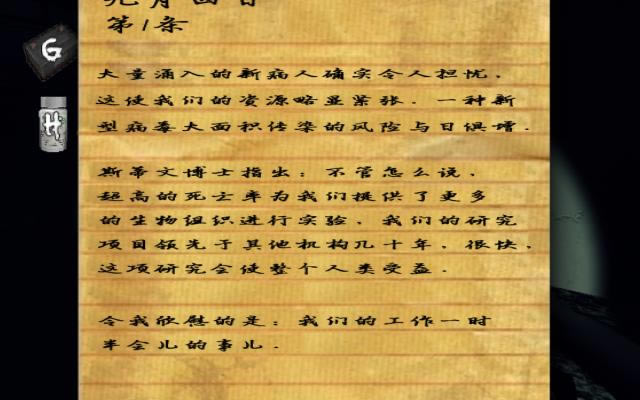 第1条
大量涌入的新病人确实令人担忧.
这使我们的资源略显紧张. 一种新
型病毒大面积传染的风险与日俱增.
斯蒂文博士指出: 不管怎么说,
超高的死亡率为我们提供了更多
的生物组织进行实验. 我们的研究
项目领先于其他机构几十年, 很快,
这项研究会使整个人类受益.
令我欣慰的是: 我们的工作一时
半会儿的事儿.
G
H